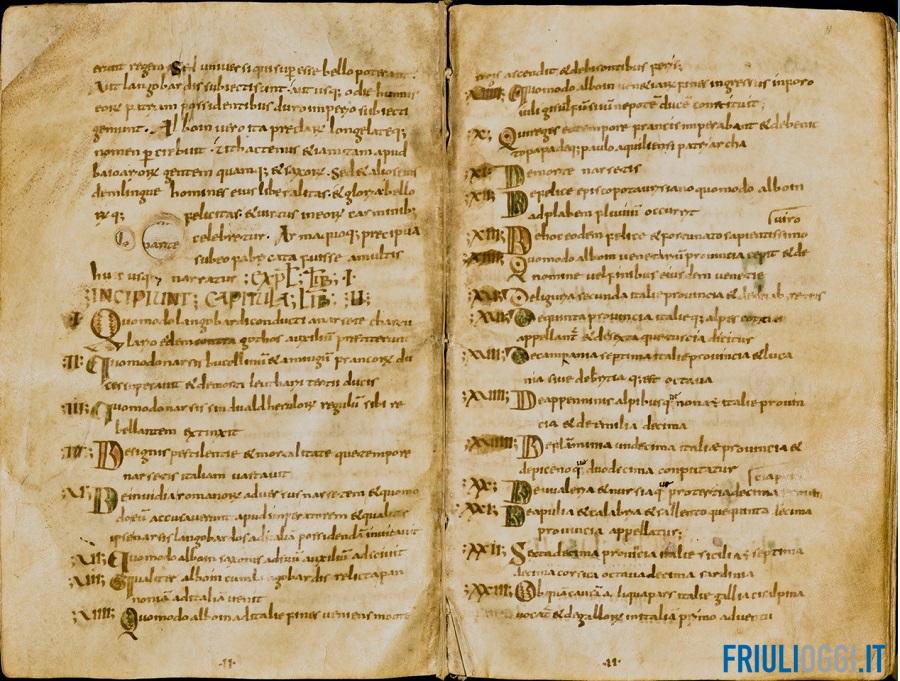 erunt regem Sed universi qui superesse bello poterant
Aut langobardis subiecti sunt. aut usq; o die hunnis
eorum patriam possidentibus duro imperio subiecti
gemunt. Alboin vero ita preclarum longe lateq;
nomen percrebuit. ut hactenus &iam tam apud
baioariorum gentem quamq; & saxonum. Sed & alios eius
dem lingue homines eius liberalitas. & gloria bello
rumq; felicitas. & virtus in eorum carminib;
celebretur. Arma quoq; precipua
sub eo fabricata fuisse a multis
huc usq; narratur : EXPL LIB I
INCIPIUNT CAPITULA LIB II
I Quomodo langobardi conducti a narsete chartu
lario eidem contra gothos auxilium prebuerunt
II Quomodo narsis bucellinum & amingum francorum du
ces superavit & de morte leutharii tertii ducis
III Quomodo narsis sinduald herulorum regulum sibi re
bellantem extinxit
De signis pestilentie & mortalitate que tempore
narsetis italiam vastavit
De invidia romanorum adversus narsetem & quomo
do eum accusaverunt apud imperatorem & qualiter
ipse narsis langobardos ad italia possidendam invitavit
Quomodo alboin saxones ad suum auxilium adscivit
Qualiter alboin cum langobardis relicta pan
noniam ad italiam venit
Quomodo alboin ad italie fines veniens monte
regis ascendit & de bisontibus feris
Quomodo alboin veniarum fines ingressus in foro
iuli gisulfum suum nepotem ducem constituit
X Qui reges eo tempore francis imperabant & de benedic
to papa deq; paulo aquiliensi patriarcha
XI De morte narsetis
XII De felice episcopo tarvisiano quomodo alboin
ad plabem fluvium occurrit
viro
XIII De hoc eodem felice & fortunato sapientissimo
Quomodo alboin veneciarum provincia cepit & de
nomine vel finibus eiusdem venecie
De liguria secunda italie provincia & de duab; retiis
De quinta provincia italie q; alpes cottie
appellantur & de sexta que tuscia dicitur
De campania septima italie provincia & luca
nia sive britia q; est octava
De appenninis alpibus q; nona est italie provin
cia & de emilia decima
De flaminia undecima italie provincia &
de piceno q; duodecima computatur
XX De valeria & nursia q; fro tertia decima
XXI De apulia & calabria & sallento que quinta decima
provincia appellatur
XXII Sexta decima provincia italie sicilia est septima
decima corsica octava decima sardinia
XXIII Ob qua causam aliqua pars italie gallia cisalpina
vocatur & de gallorum in italiam primo adventu
FRIULIOGGI.IT